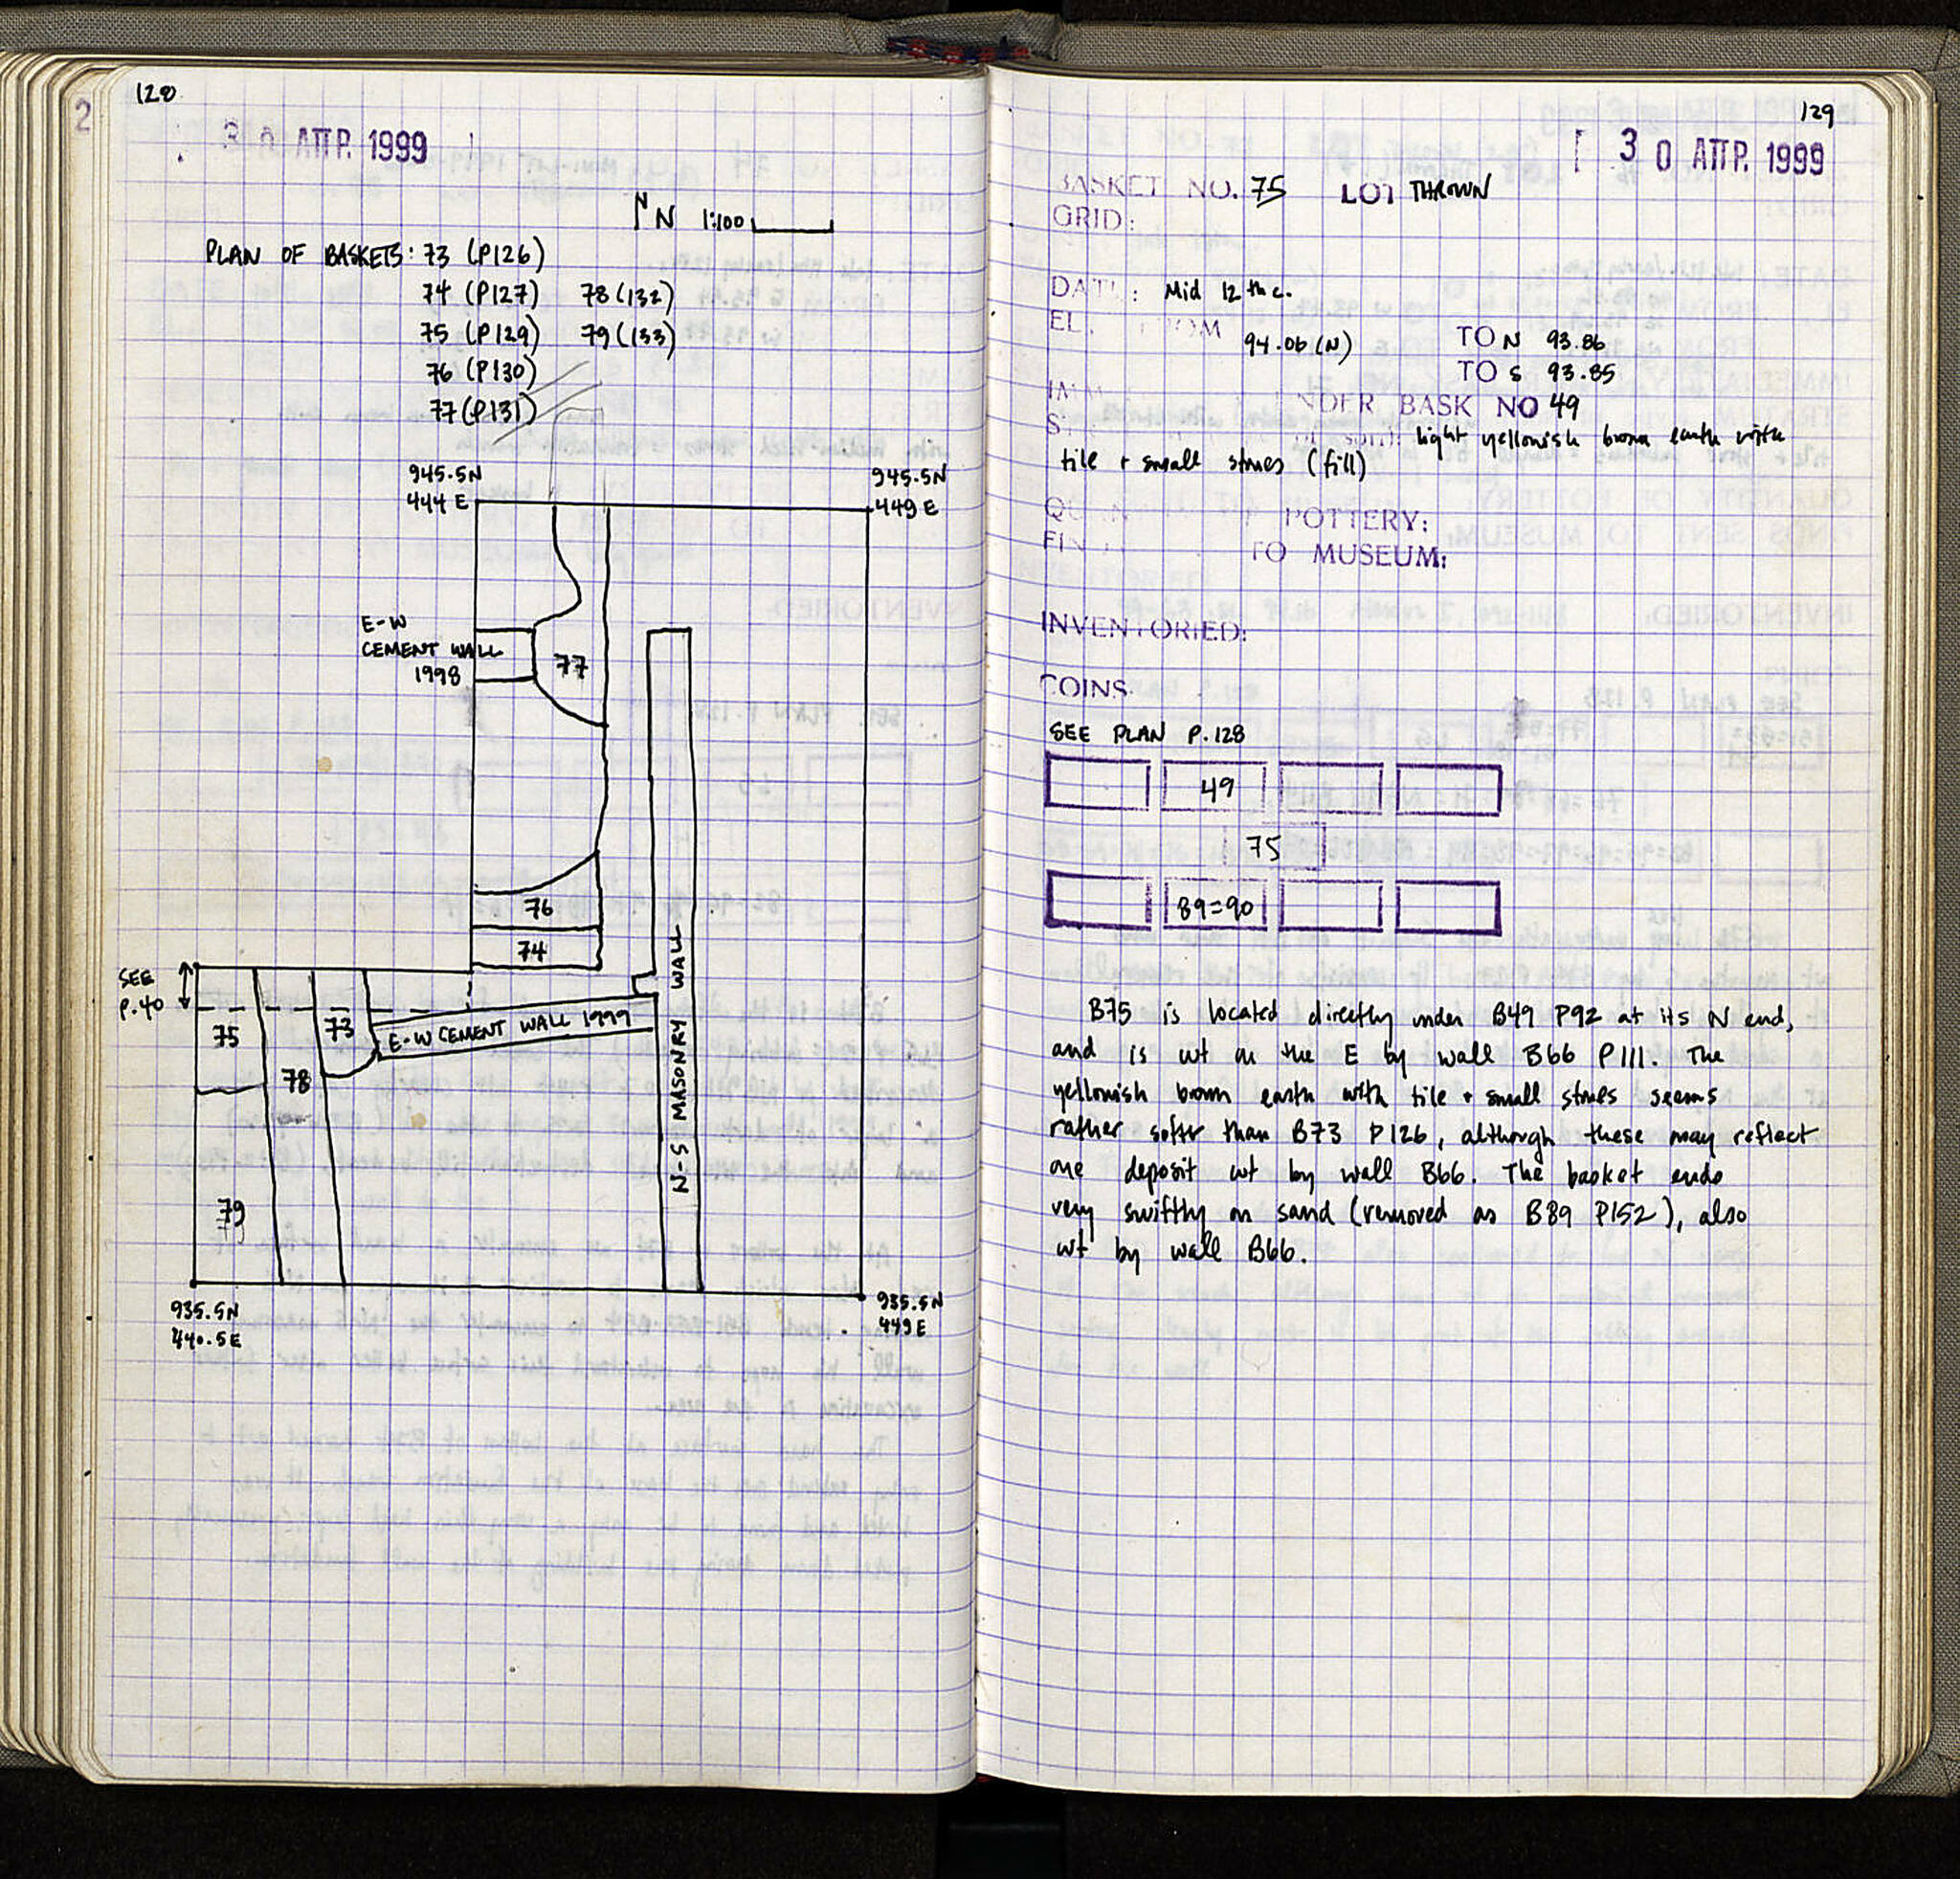 128
30 ΑΠΡ. 1999
N 1:100
PLAN OF BASKETS: 73 (P126)
74 (P127) 78 (132)
75 (P129) 79 (133)
76 (P130)
77 (P131)
945.5N
444 E
945.5N
449 E
E-W
CEMENT WALL
1998
77
76
74
SEE
P.40
75
73
E-W CEMENT WALL 1999
N-S MASONRY WALL
78
79
935.5N
440.5E
935.5N
449 E
129
30 ΑΠΡ. 1999
BASKET NO. 75 LOT THROWN
GRID:
DATE: Mid 12th c.
EL. FROM 94.06 (N) TO N 93.86
TO S 93.85
UNDER BASK NO 49
light yellowish brown earth with
tile + small stones (fill)
POTTERY:
TO MUSEUM:
INVENTORIED:
COINS
SEE PLAN P.128
49
75
89=90
B75 is located directly under B49 P92 at its N end,
and is cut on the E by wall B66 P111. The
yellowish brown earth with tile + small stones seems
rather softer than B73 P126, although these may reflect
one deposit cut by wall B66. The basket ends
very swiftly on sand (removed as B89 P152), also
cut by wall B66.